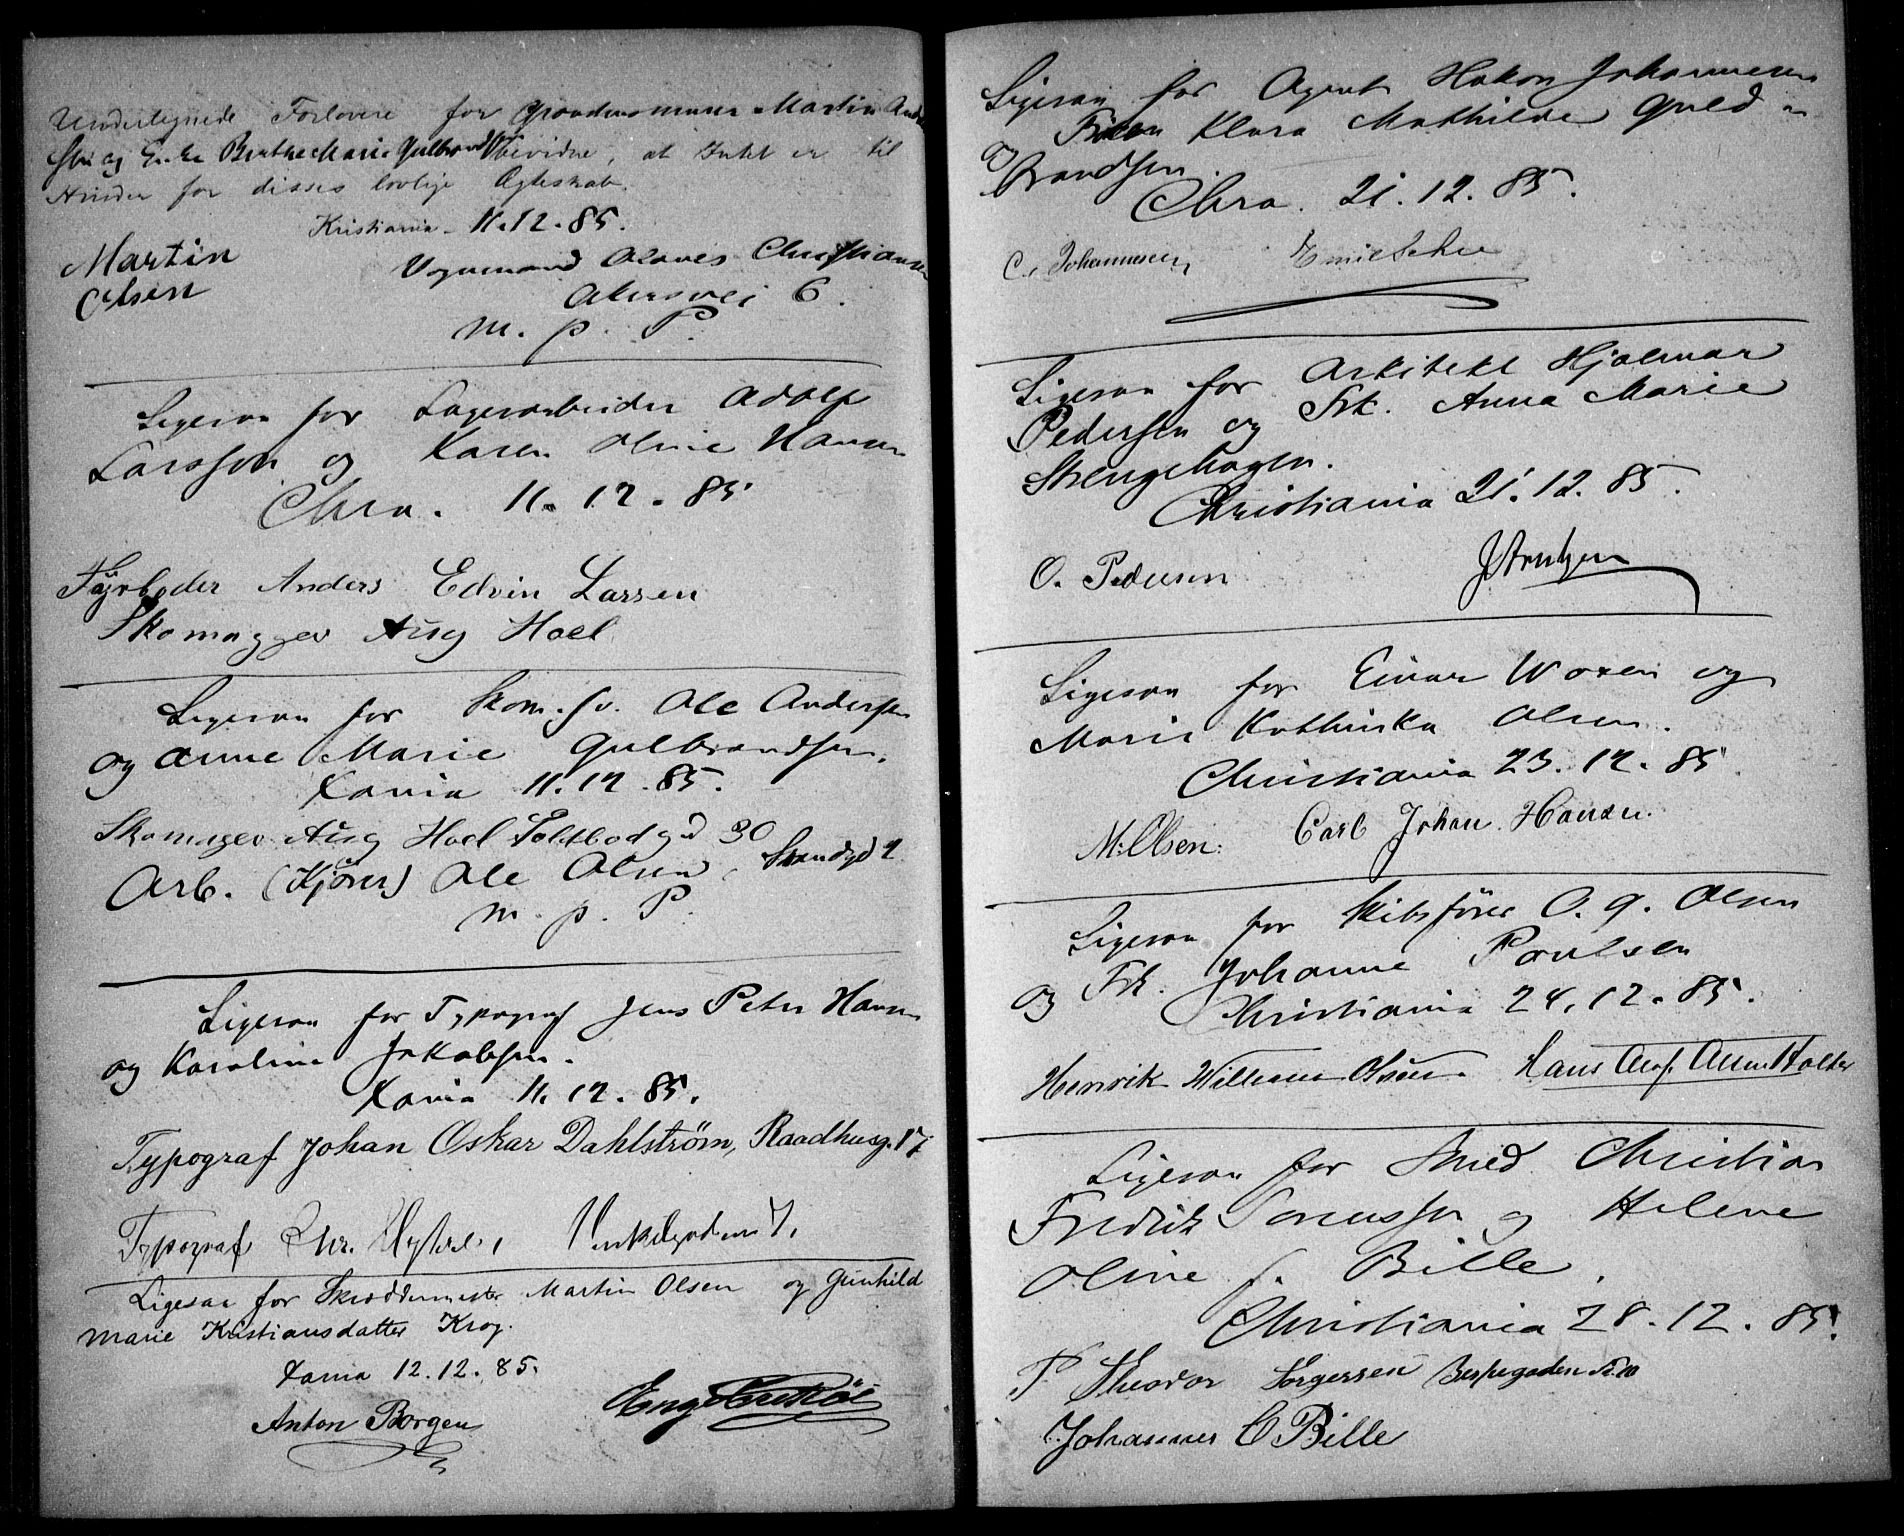 Undertegnede Forlovere for Martin
og Enke Berthe Marie Gulbrands bevidne, at Intet er til
Hinder for disses lovlige Ægteskab.
Kristiania 11.12.85.
Martin
Olsen
Vognmand Christiansen
Akersvei 6.
m. p. P.
Ligesaa for Lagerarbeider Adolf
Larsson og Karen Oline Hansen
Chra. 11.12.85
Fyrbøder Anders Edvin Larsen
Skomager Aug Hoel
Ligesaa for Skom.sv. Ole Andersen
og Anne Marie Gulbrandsen.
Xania 11.12.85.
Skomager Aug Hoel Toldbodgd 30
Arb. (Kjører) Ole Olsen, Strandgd 2
m. p. P.
Ligesaa for Typograf Jens Peter Hansen
og Karoline Jakobsen.
Xania 11.12.85.
Typograf Johan Oskar Dahlström, Raadhusg. 17
Typograf Chr. 7.
Ligesaa for Skræddermester Martin Olsen og Gunhild
Marie Kristiansdatter Krog.
Xania 12.12.85.
Anton Borgen
Ligesaa for Agent Hakon Johannesen
og Frøken Klara Mathilde Guld =
brandsen.
Chra. 21.12.85.
C. Johannesen
Ligesaa for Arkitekt Hjalmar
Pedersen og Frk. Anna Marie
Strengehagen.
Christiania 21.12.85.
O. Pedersen J Arntzen
Ligesaa for Einar Woxen og
Marie Kathinka Olsen.
Christiania 23.12.85.
M. Olsen. Carl Johan Hansen.
Ligesaa for Skibsfører O. G. Olsen
og Frk. Johanne Paulsen
Christiania 24.12.85.
Henrik William Olsen Hans Olaf Olsen Holder
Ligesaa for Smed Christian
Fredrik og Helene
Oline f. Bille.
Christiania 28.12.85.
P Theodor Jørgensen Bispegaden No. 10
Johannes C Bille